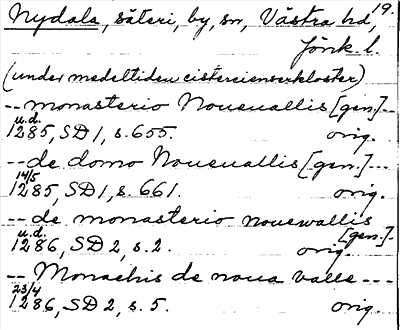 19.
Nydala, säteri, by, sn, Västra hd,
Jönk. l.
(under medeltiden cistercienserkloster)
-- monasterio Noueuallis [gen.]--
u.d.
1285, SD 1, s. 655. orig.
-- de domo Noueuallis [gen.]---
14/5
1285, SD 1, s. 661. orig.
-- de monasterio nouewallis
[gen.]-
u.d.
1286, SD 2, s. 2. orig.
-- Monachis de noua valle ---
23/4
1286, SD 2, s. 5. orig.